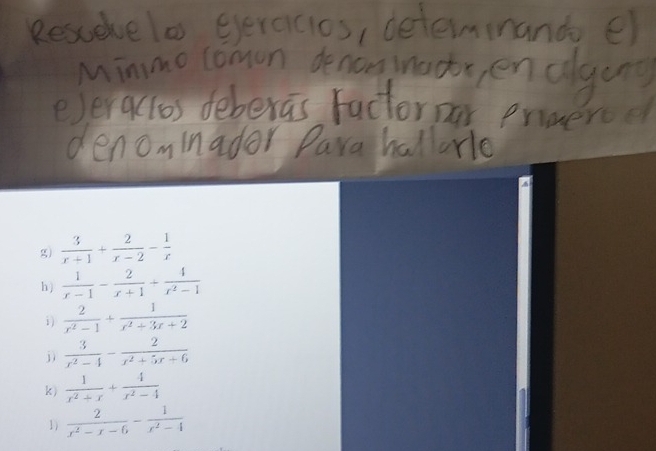 Resuelve los ejercicios, determinando el
Minimo Comun denominador, en algunos
ejercicios deberás Factorizar Primero el
denominador Para hallarlo
g) \frac{3}{x+1} + \frac{2}{x-2} - \frac{1}{x}
h) \frac{1}{x-1} - \frac{2}{x+1} + \frac{4}{x^2-1}
i) \frac{2}{x^2-1} + \frac{1}{x^2+3x+2}
j) \frac{3}{x^2-4} - \frac{2}{x^2+5x+6}
k) \frac{1}{x^2+x} + \frac{4}{x^2-4}
l) \frac{2}{x^2-x-6} - \frac{1}{x^2-4}